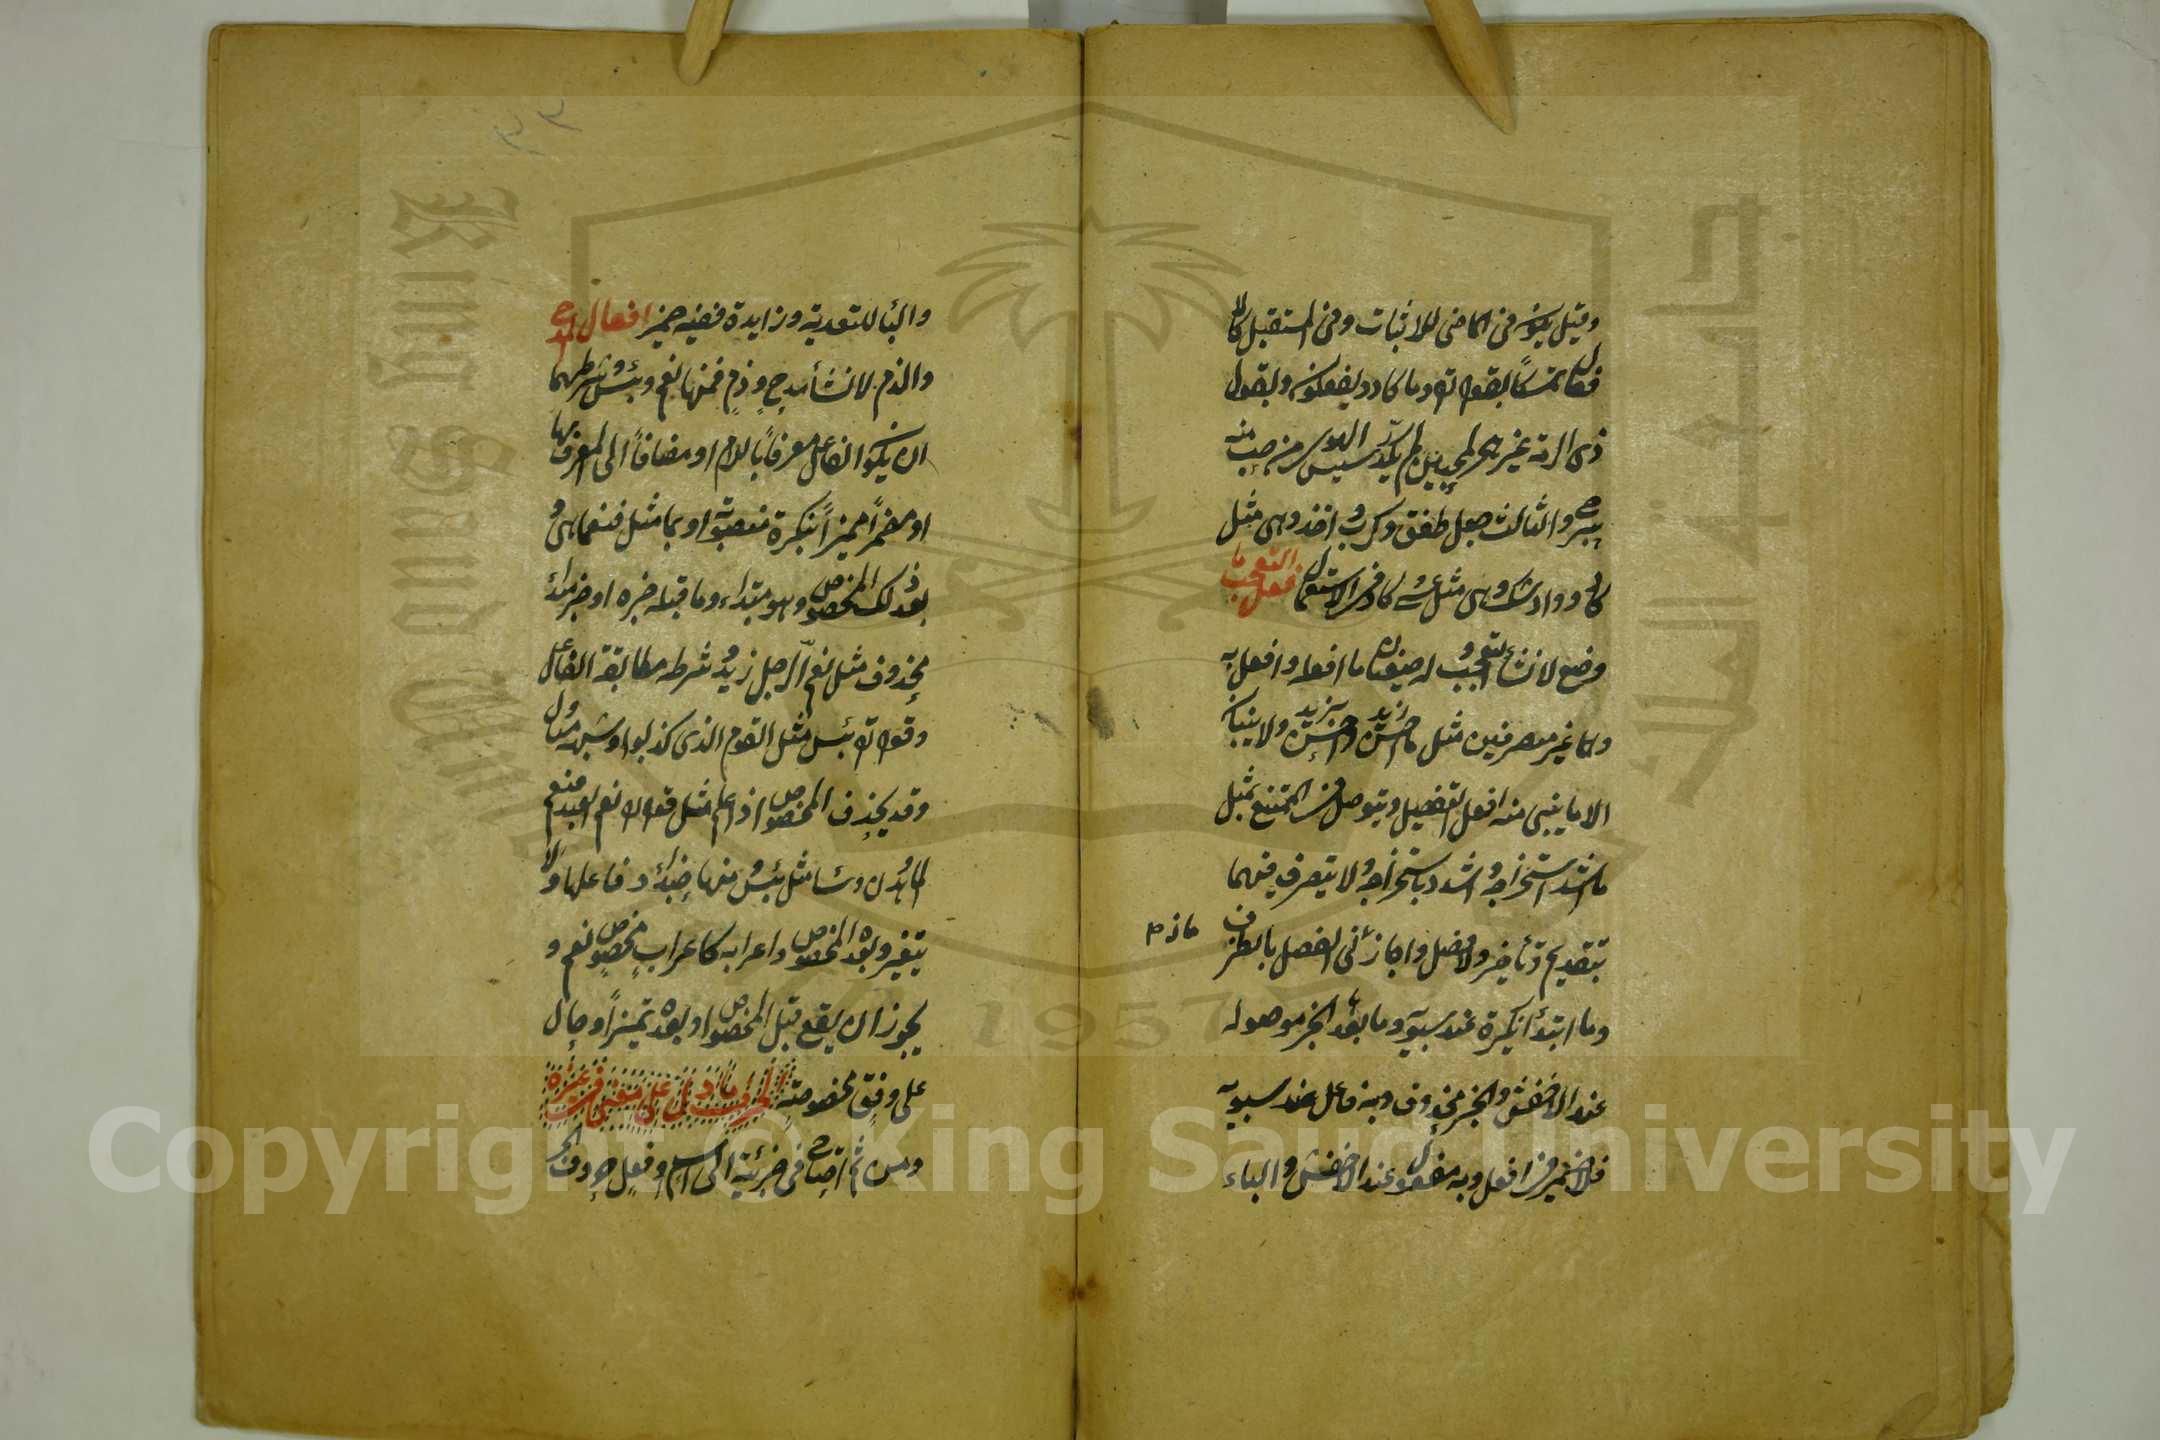 وقيل يكون في الماضي للاثبات وفي المستقبل كالا
فعال تمسكاً بقوله تع وما كادوا يفعلون وبقول
ذي الرمة غير الهجر المحبين لم يكد رسيس الهوى من حب مية
يبرح والثالث جعل طفق وكرب واخذ وهي مثل
كاد واوشك وهي مثل عسى وكاد في الاستعمال فعل التعجب ما
وضع لانشاء التعجب وله صيغتان ما افعله وافعل به
وهما غير متصرفين مثل ما احسن زيد واحسن بزيد ولا يبنيان
الا مما يبنى منه افعل التفضيل ويتوصل في الممتنع بمثل
ما اشد استخراجه واشدد باستخراجه ولا يتصرف فيهما
بتقديم وتأخير ولا فصل واجاز المازني الفصل بالظرف
وما ابتدأ نكرة عند سيبويه وما بعد الخبر موصوله
عند الاخفش والخبر محذوف وبه فاعل عند سيبويه
فلا ضمير في افعل وبه مفعول عند الاخفش والباء
٣٣
والبا للتعدية وزايدة ففيه ضمير افعال المدح
والذم لانشأ مدح وذم فمنها نعم وبئس وشرطهما
ان يكون الفاعل معرفاً باللام او مضافاً الى المعرف بها
او مضمراً مميزاً بنكرة منصوبة او بما مثل فنعما هي و
بعد ذلك المخصوص وهو مبتداء وما قبله خبره او خبر مبتدأ
محذوف مثل نعم الرجل زيد وشرطه مطابقة الفاعل
وقوله تع بئس مثل القوم الذي كذبوا وشبهه متأول
وقد يحذف المخصوص اذا علم مثل قوله نعم العبد فنعم
الماهدون وسا مثل بئس ومنها حبذا وفاعلها ذا ولا
يتغير وبعده المخصوص واعرابه كاعراب مخصوص نعم و
يجوز ان يقع قبل المخصوص او بعده تميز او حال
على وفق مخصوصه الحرف ما دل على معنى في غيره
ومن ثم احتاج في جزئيته الى اسم او فعل حروف الجر